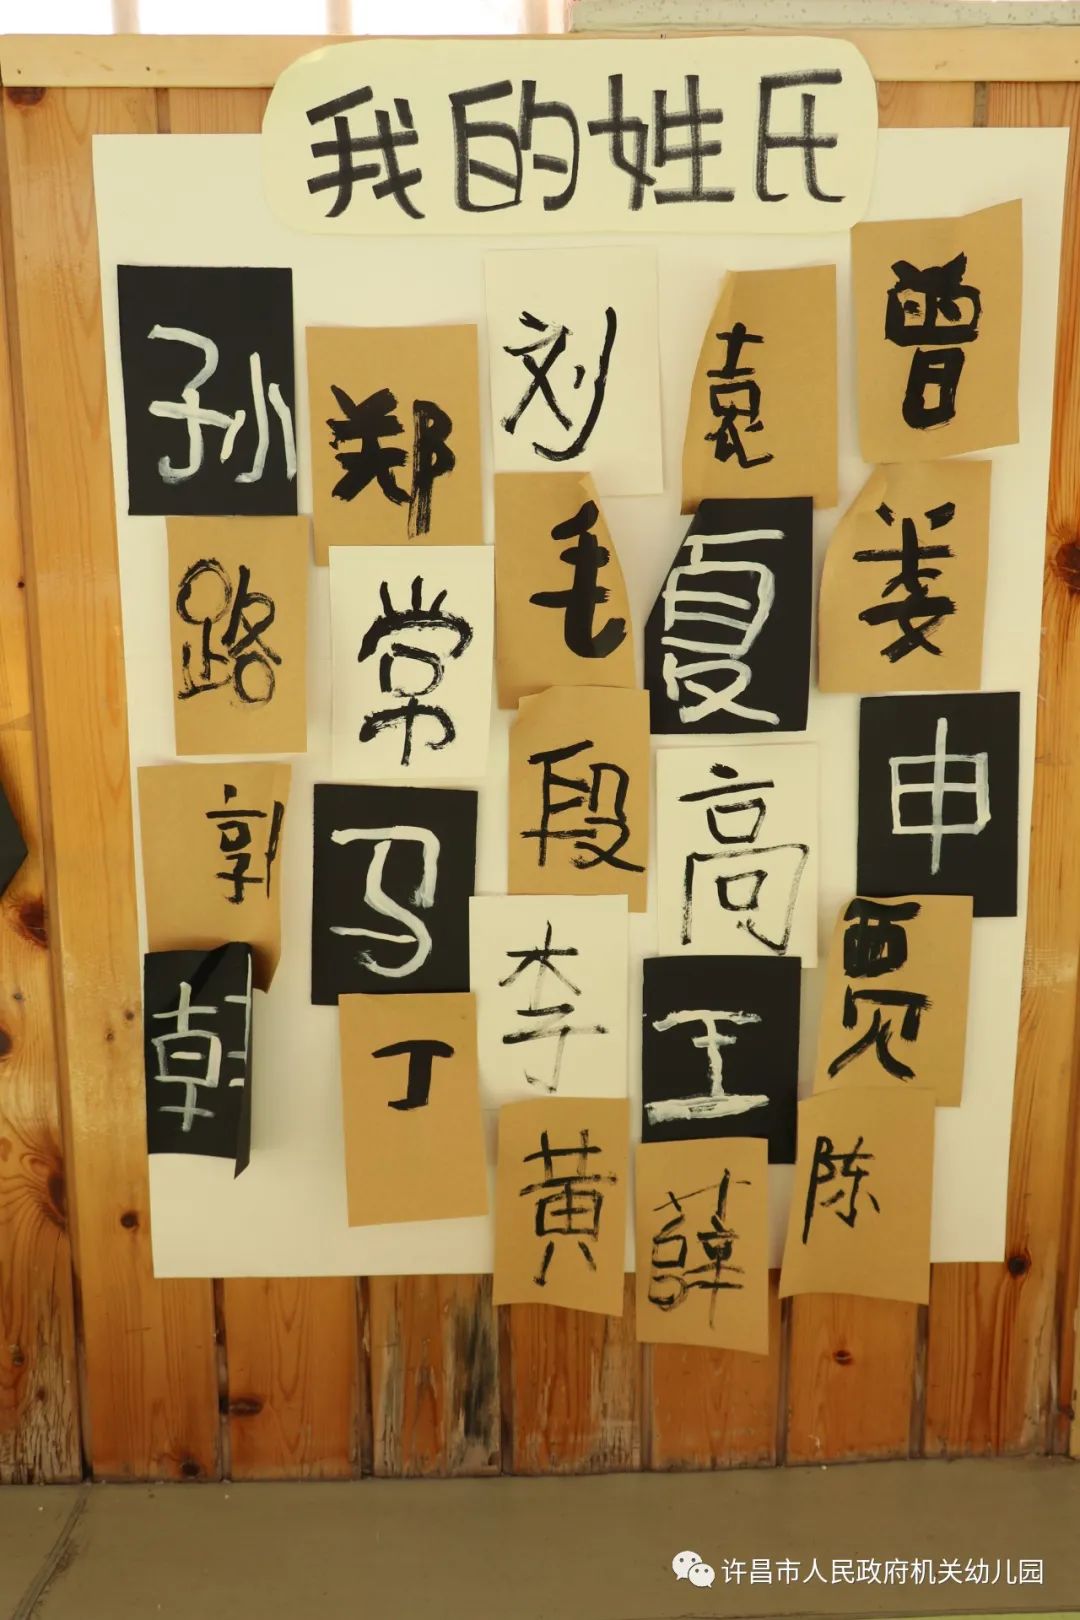 我的姓氏
孙
郑
刘
袁
曾
路
常
毛
夏
姜
郭
马
段
高
申
韩
丁
李
王
贾
黄
薛
陈
许昌市人民政府机关幼儿园